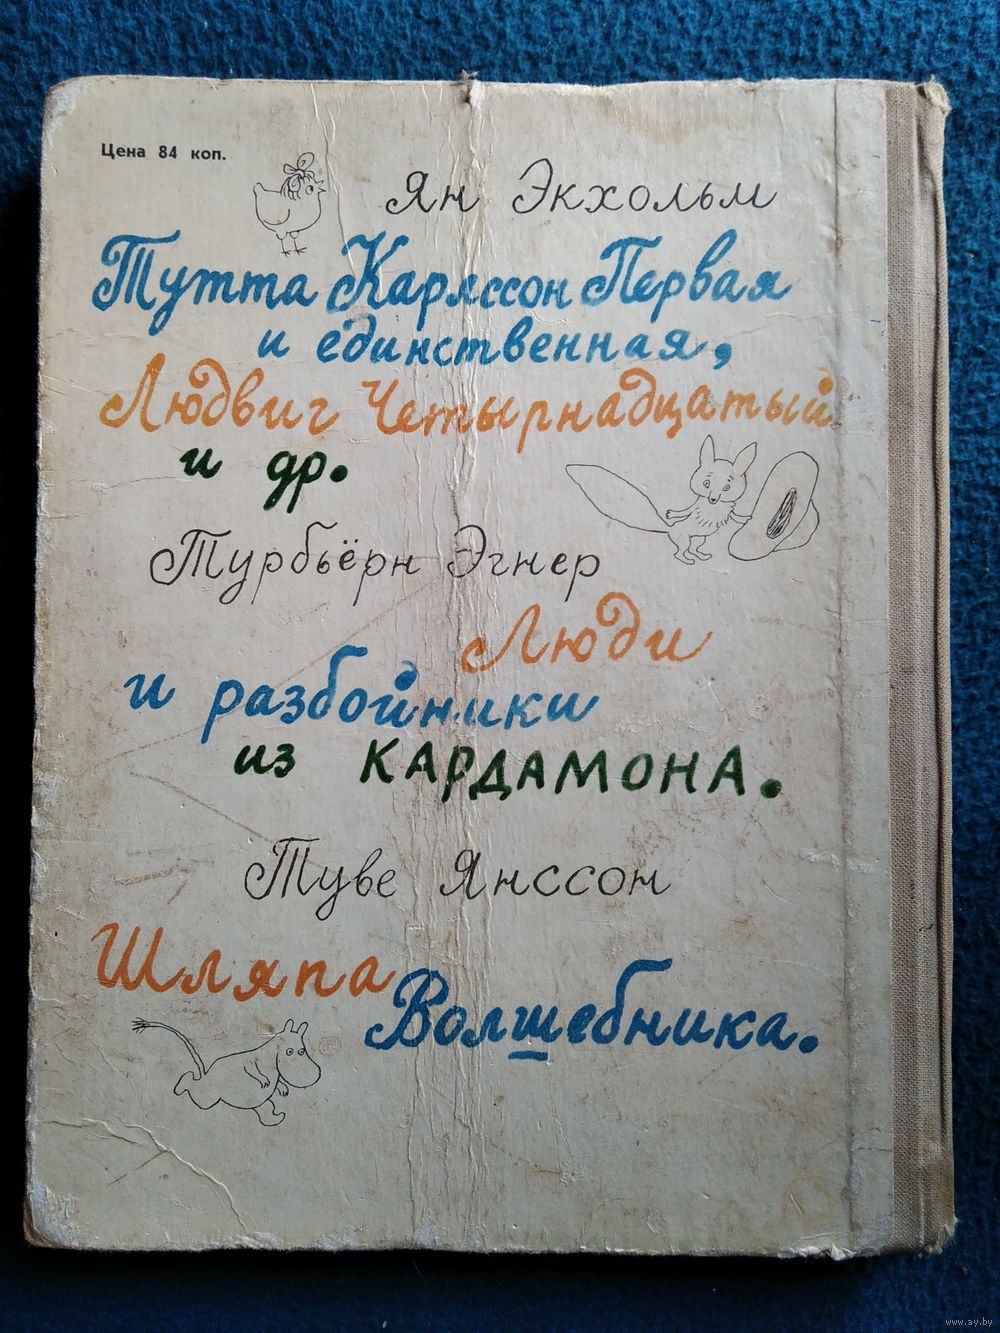 Цена 84 коп.
Ян Экхольм
Тутта Карлссон Первая
и единственная,
Людвиг Четырнадцатый
и др.
Турбьёрн Эгнер
Люди
и разбойники
из КАРДАМОНА.
Туве Янссон
Шляпа
Волшебника.
www.ay.by